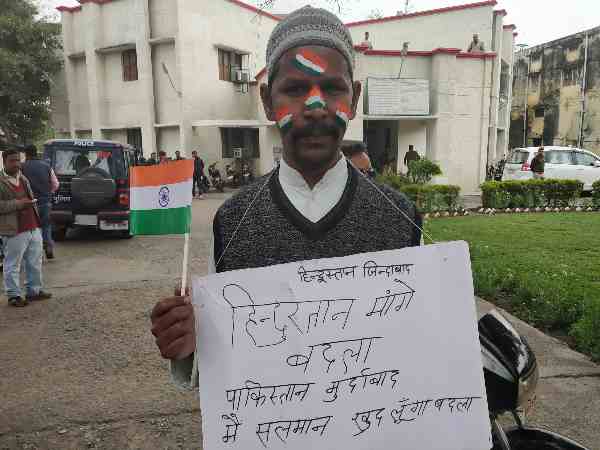 POLICE
पुलिस
हिन्दुस्तान जिन्दाबाद
हिन्दुस्तान मांगे
बदला
पाकिस्तान मुर्दाबाद
मैं सलमान खुद लूँगा बदला